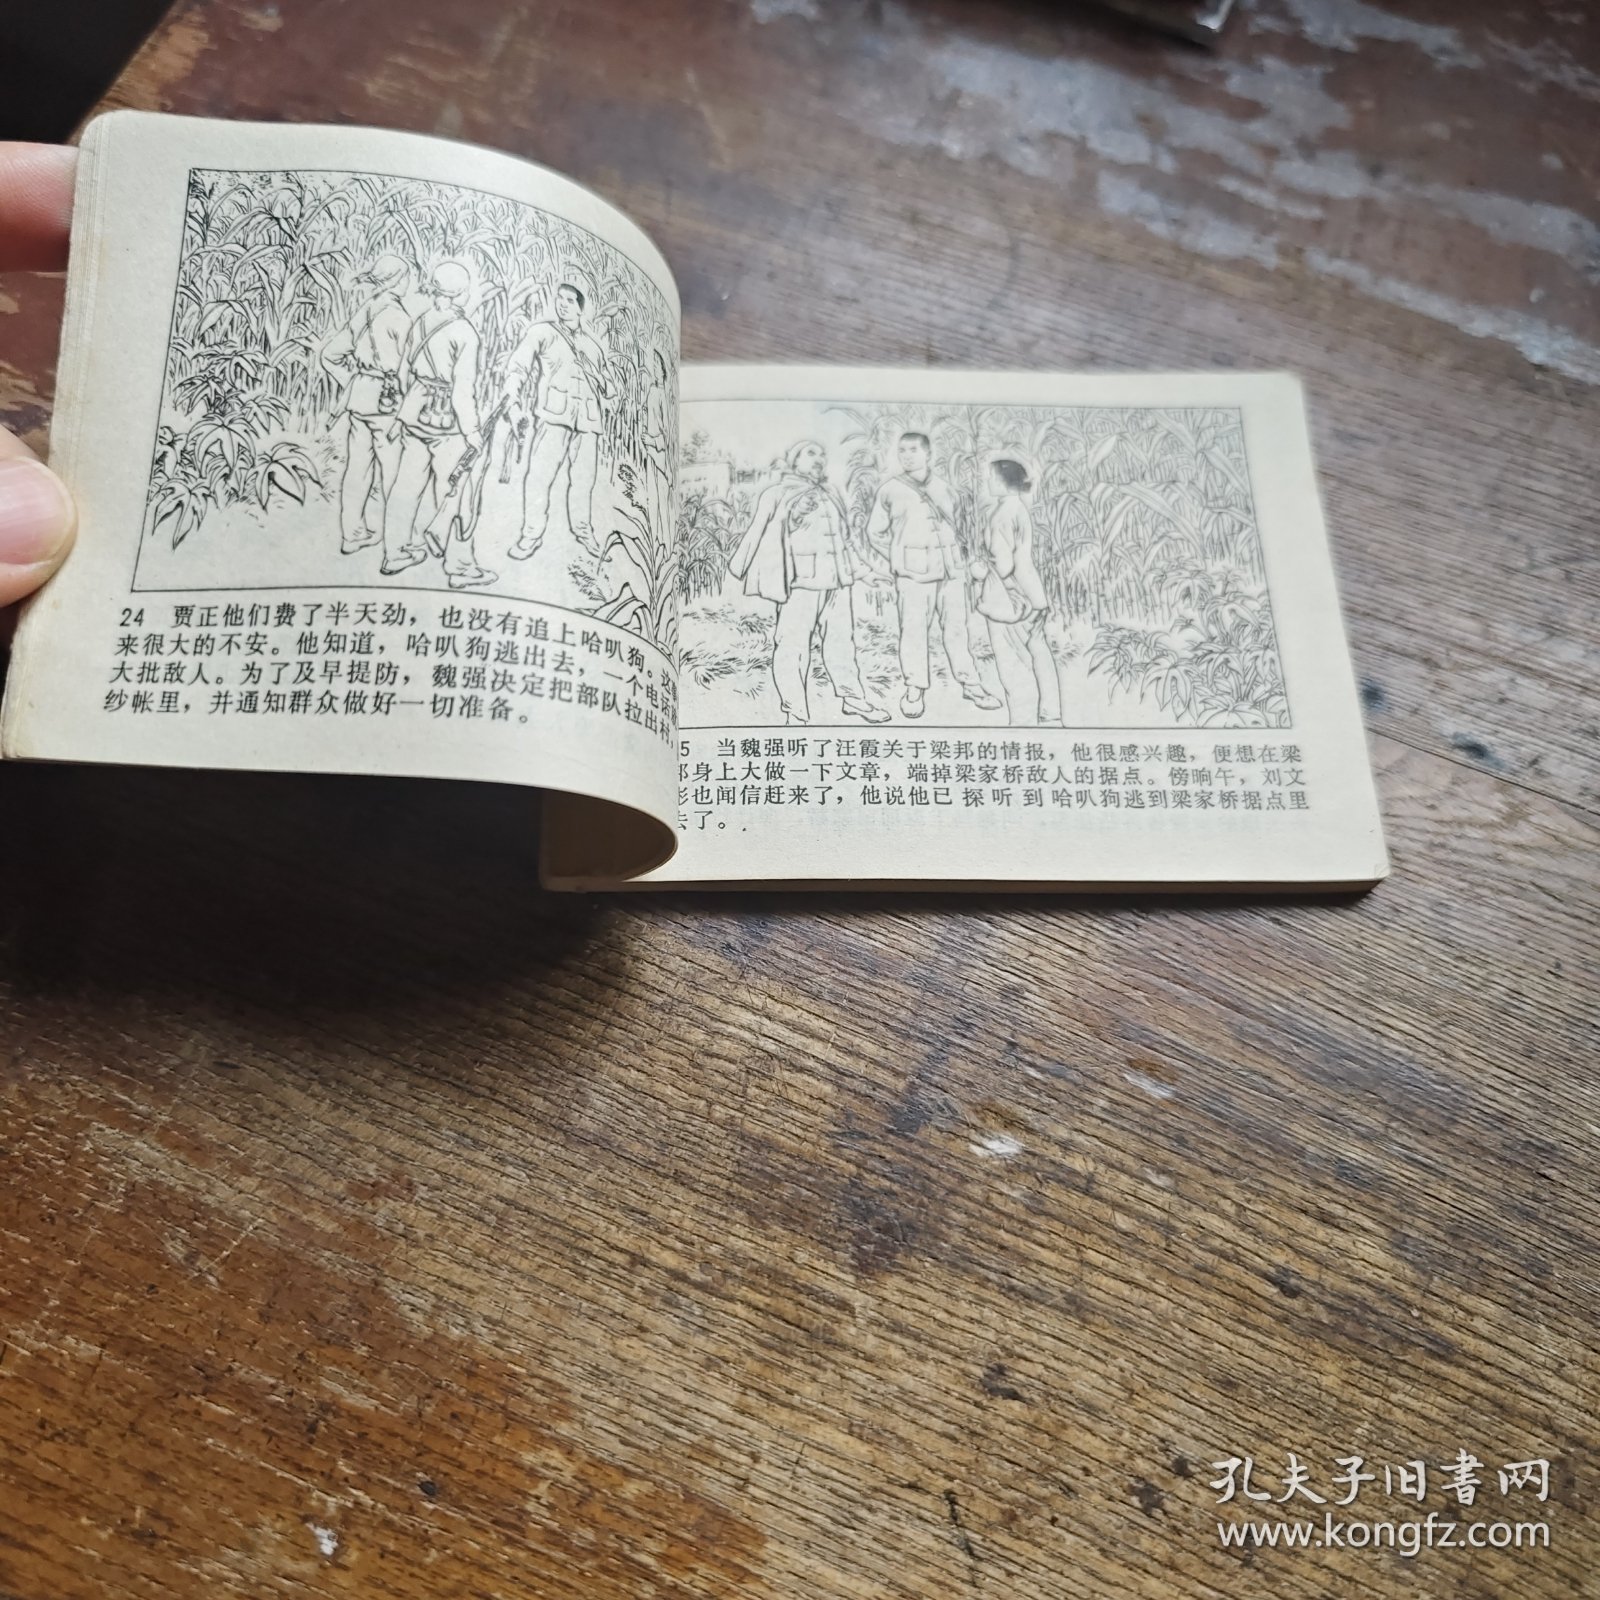 24 贾正他们费了半天劲，也没有追上哈叭狗。这
来很大的不安。他知道，哈叭狗逃出去，一个电话
大批敌人。为了及早提防，魏强决定把部队拉出村，
纱帐里，并通知群众做好一切准备。
5 当魏强听了汪霞关于梁邦的情报，他很感兴趣，便想在梁
邦身上大做一下文章，端掉梁家桥敌人的据点。傍晌午，刘文
彬也闻信赶来了，他说他已探听到哈叭狗逃到梁家桥据点里
去了。
孔夫子旧书网
www.kongfz.com